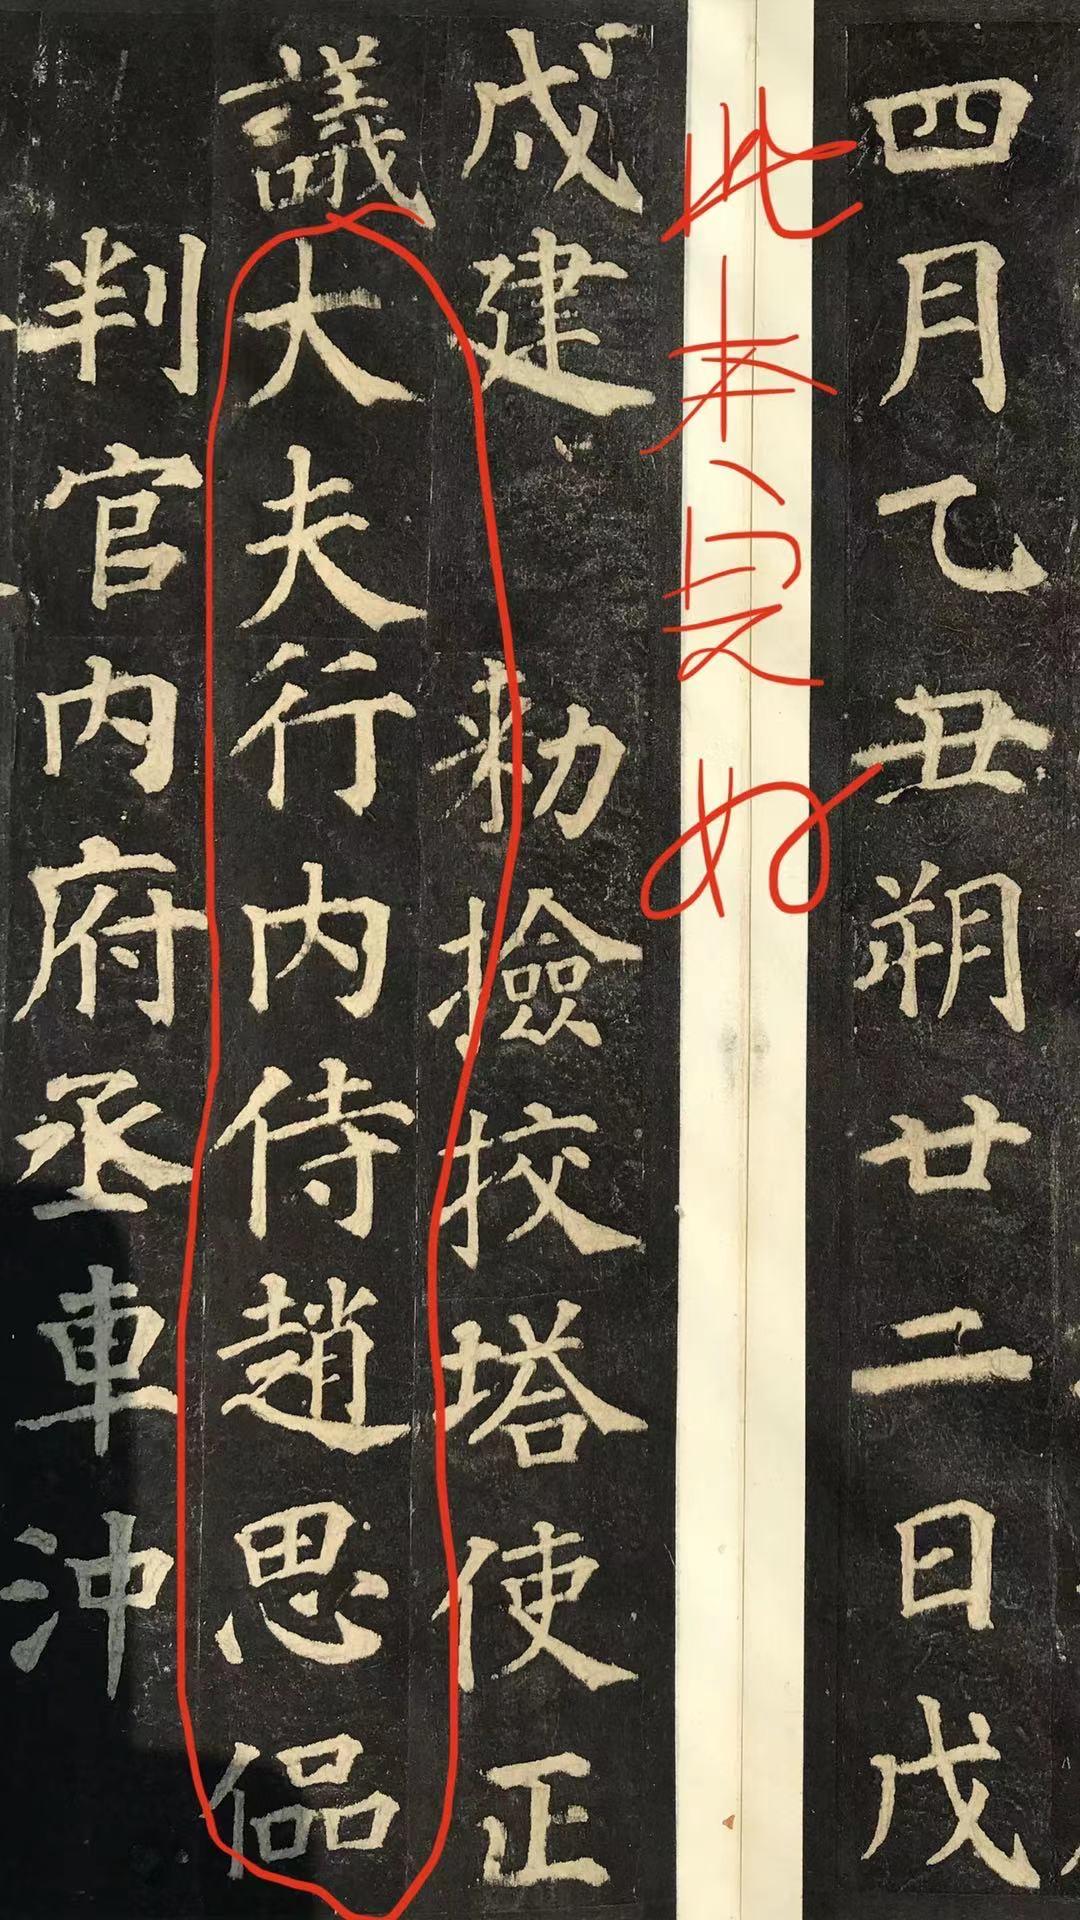 四月乙丑朔廿二日戊
此本
戌建勑撿挍塔使正
議大夫行内侍趙思偘
判官内府丞車沖